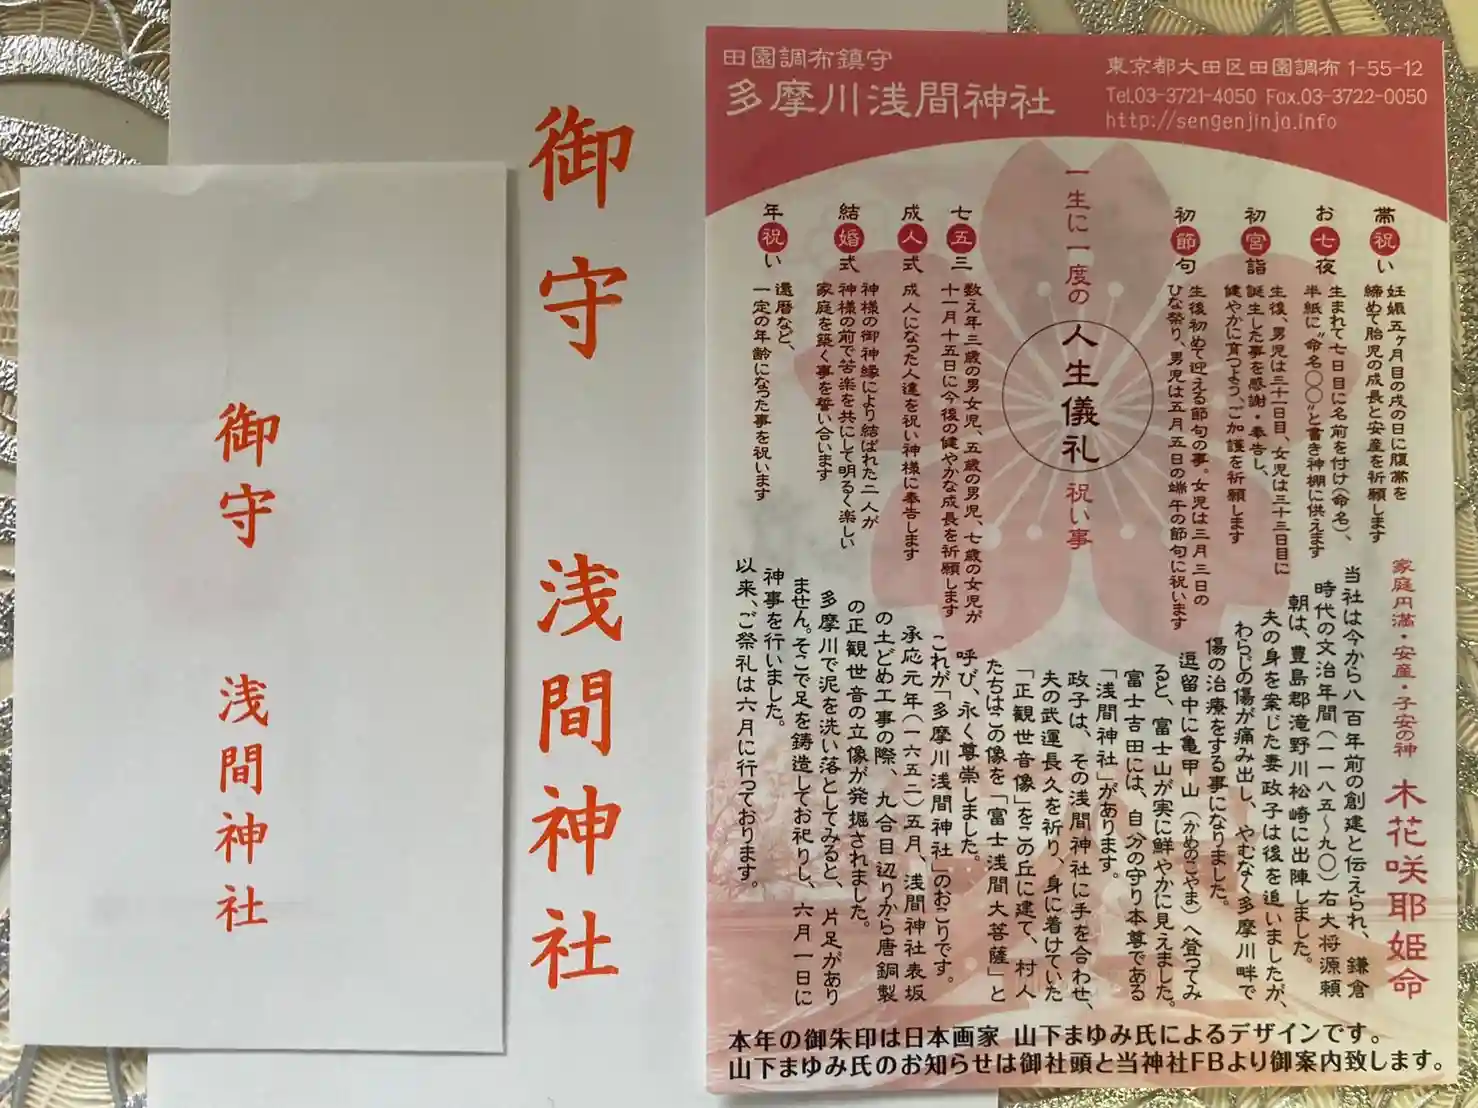 御守
浅間神社
御守
浅間神社
田園調布鎮守
多摩川浅間神社
東京都大田区田園調布1-55-12
Tel.03-3721-4050 Fax.03-3722-0050
http://sengenjinja.info
一生に一度の人生儀礼祝い事
帯祝い
妊娠五ヶ月目の戌の日に腹帯を
締めて胎児の成長と安産を祈願します
お七夜
生まれて七日目に名前を付け(命名)、
半紙に"命名〇〇"と書き神棚に供えます
初宮詣
生後、男児は三十一日目、女児は三十三日目に
誕生した事を感謝・奉告し、
健やかに育つよう、ご加護を祈願します
初節句
生後初めて迎える節句の事。女児は三月三日の
ひな祭り、男児は五月五日の端午の節句に祝います
七五三
数え年三歳の男女児、五歳の男児、七歳の女児が
十一月十五日に今後の健やかな成長を祈願します
成人式
成人になった人達を祝い神様に奉告します
結婚式
神様の御神縁により結ばれた二人が
神様の前で苦楽を共にして明るく楽しい
家庭を築く事を誓い合います
年祝い
還暦など、
一定の年齢になった事を祝います
家庭円満・安産・子安の神 木花咲耶姫命
当社は今から八百年前の創建と伝えられ、鎌倉
時代の文治年間(一一八五〜九〇)右大将源頼
朝は、豊島郡滝野川松崎に出陣しました。
夫の身を案じた妻政子は後を追いましたが、
わらじの傷が痛み出し、やむなく多摩川畔で
傷の治療をする事になりました。
逗留中に亀甲山(かめのこやま)へ登ってみ
ると、富士山が実に鮮やかに見えました。
富士吉田には、自分の守り本尊である
「浅間神社」があります。
政子は、その浅間神社に手を合わせ、
夫の武運長久を祈り、身に着けていた
「正観世音像」をこの丘に建て、村人
たちはこの像を「富士浅間大菩薩」と
呼び、永く尊崇しました。
これが「多摩川浅間神社」のおこりです。
承応元年(一六五二)五月、浅間神社表坂
の土どめ工事の際、九合目辺りから唐銅製
の正観世音の立像が発掘されました。
多摩川で泥を洗い落としてみると、片足があり
ません。そこで足を鋳造してお祀りし、六月一日に
神事を行いました。
以来、ご祭礼は六月に行っております。
本年の御朱印は日本画家 山下まゆみ氏によるデザインです。
山下まゆみ氏のお知らせは御社頭と当神社FBより御案内致します。